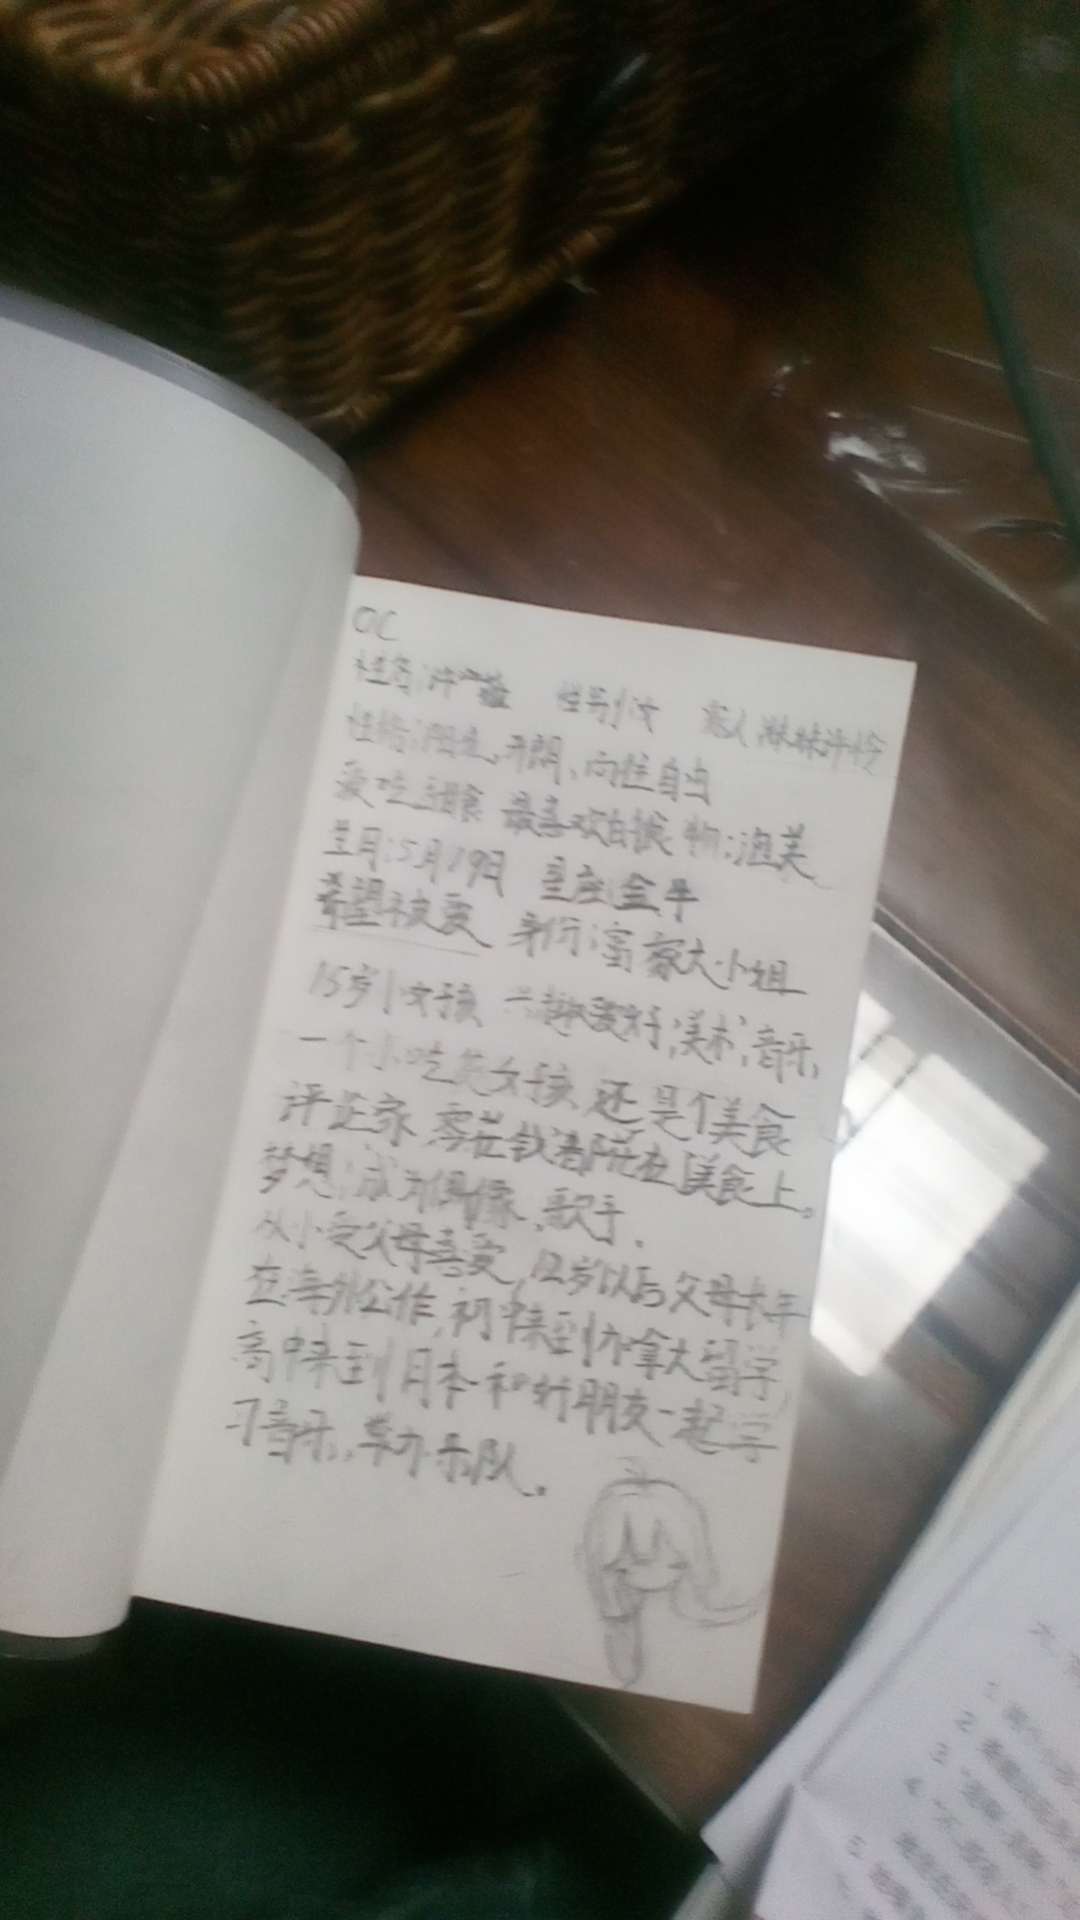 OC
姓名：许 性别：女 家人：妹妹许
性格：阳光，开朗，向往自由
爱吃甜食 最喜欢的食物：泡芙
生日：5月19日 星座：金牛
希望被爱 身份：富家大小姐
15岁小女孩 兴趣爱好：美术，音乐，
一个小吃货女孩，还是个美食
评论家，零花钱都花在美食上。
梦想：成为偶像，歌手，
从小受父母喜爱，12岁以后父母长年
在海外公作，初中来到加拿大留学，
高中来到日本和好朋友一起学
习音乐，举办乐队。